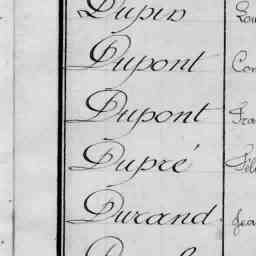 Dupin
Dupont
Dupont
Dupré
Durand